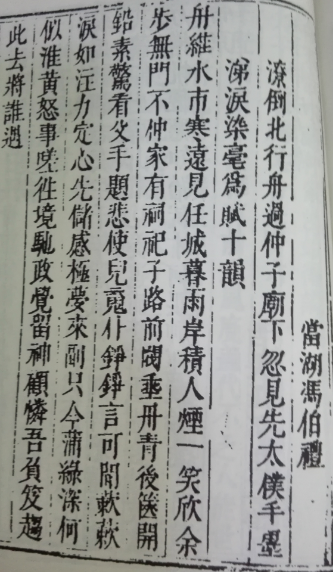 當湖馮伯禮
潦倒北行舟過仲子廟下忽見先太僕手墨
涕淚染毫爲賦十韻
舟維水市寒遠見任城暮兩岸積人煙一笑欣余
步無門不仲家有祠祀子路前閎垂丹青後篋開
鉛素驚看父手題悲使兒魂仆錚錚言可聞歎歎
淚如汪力定心先儲感極夢來副只今蒲綠深何
似淮黃怒事嗟往境馳政覺留神顧憐吾負笈趨
此去將誰遇